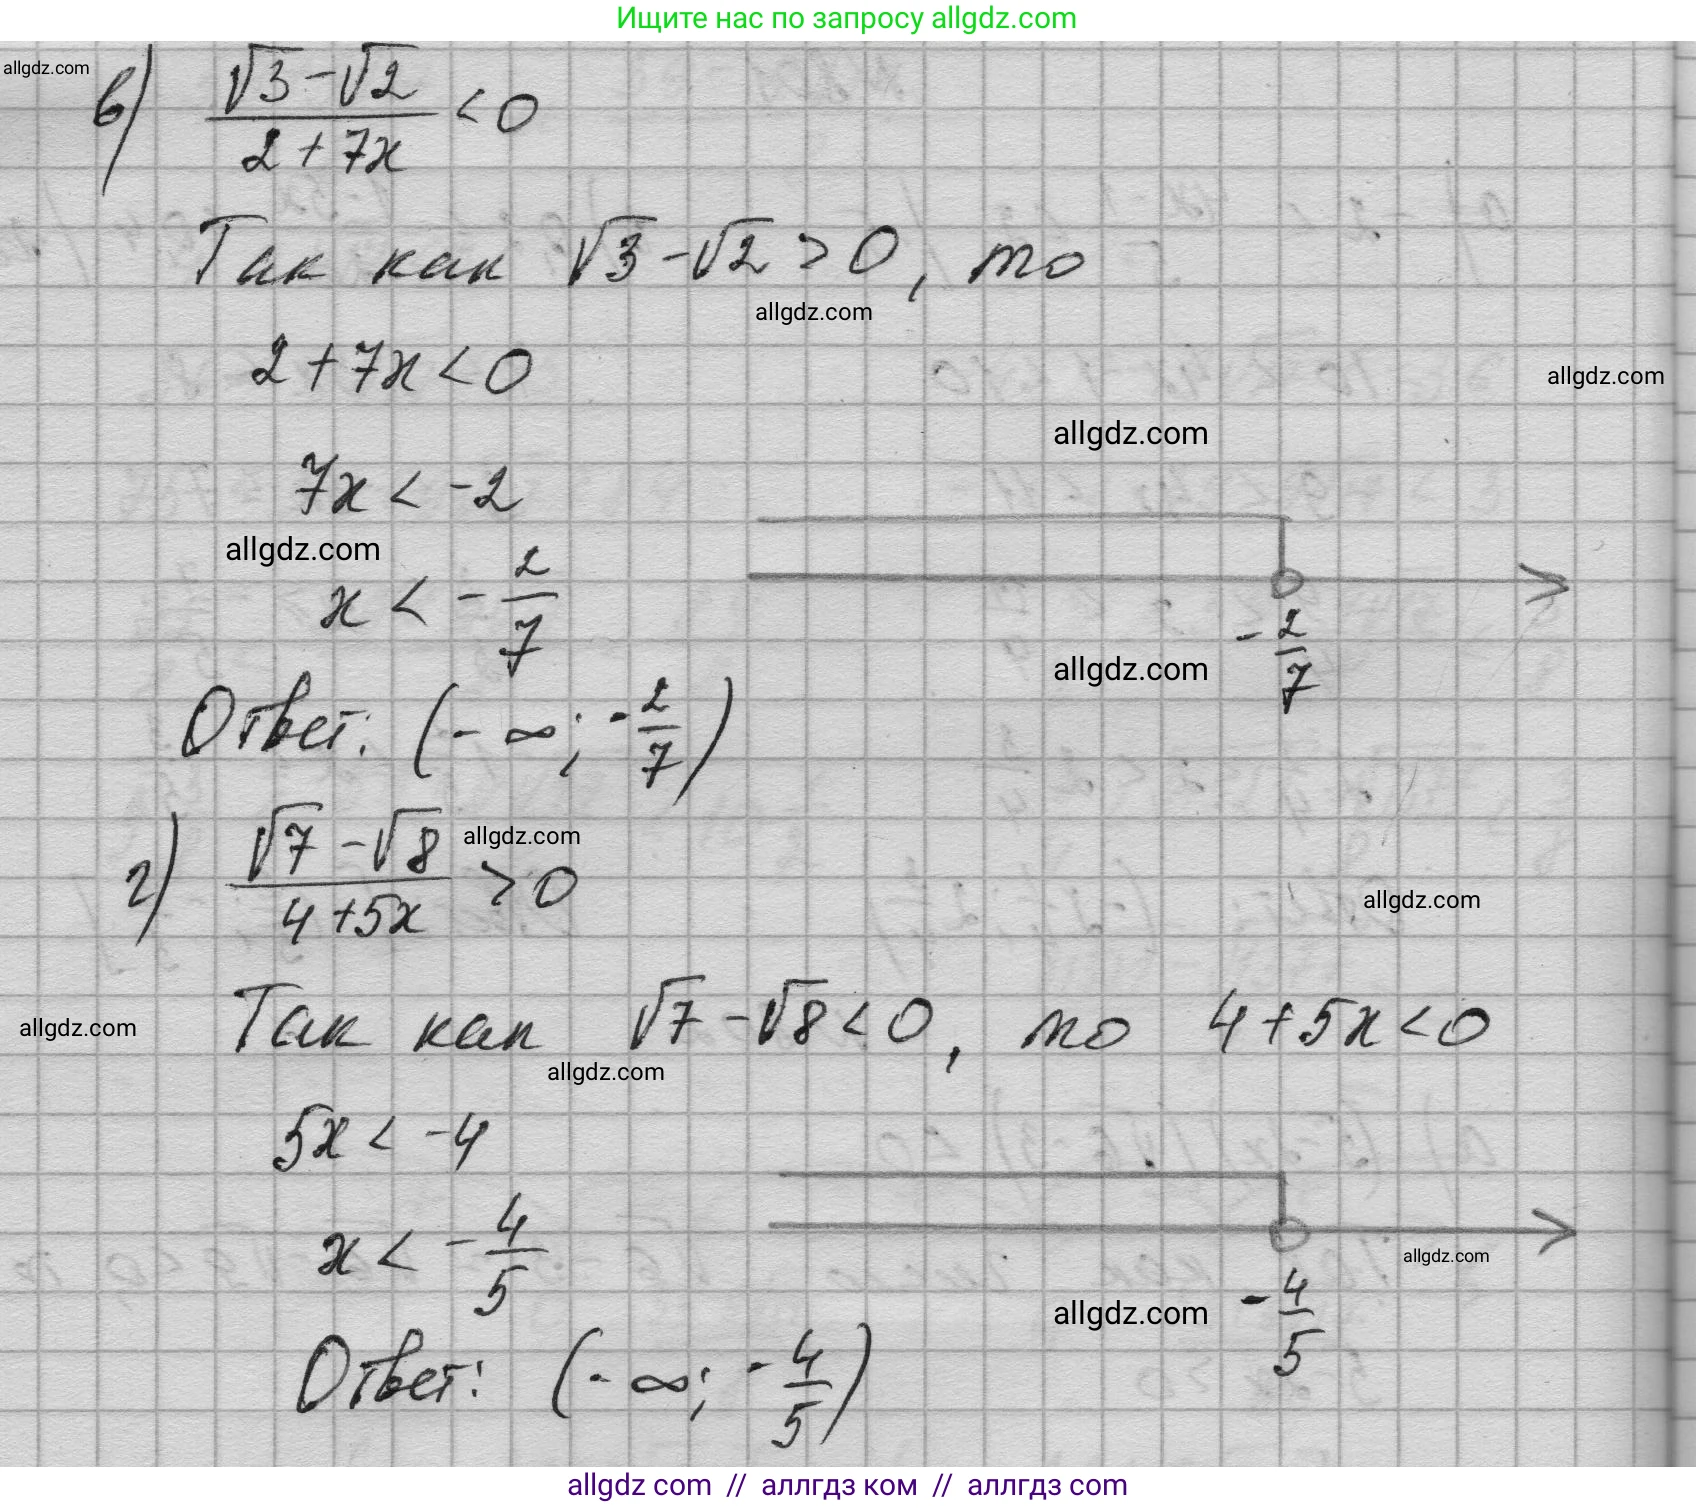 Ищите нас по запросу allgdz.com
allgdz.com
в) (√3 - √2)/(2 + 7x) < 0
Так как √3 - √2 > 0, то
allgdz.com
2 + 7x < 0
allgdz.com
allgdz.com
7x < -2
allgdz.com
x < - 2/7
- 2/7
allgdz.com
Ответ: (- ∞; - 2/7)
г) (√7 - √8)/(4 + 5x) > 0
allgdz.com
allgdz.com
Так как √7 - √8 < 0, то 4 + 5x < 0
allgdz.com
allgdz.com
5x < -4
x < - 4/5
allgdz.com
allgdz.com
- 4/5
Ответ: (- ∞; - 4/5)
allgdz com // аллгдз ком // аллгдз com